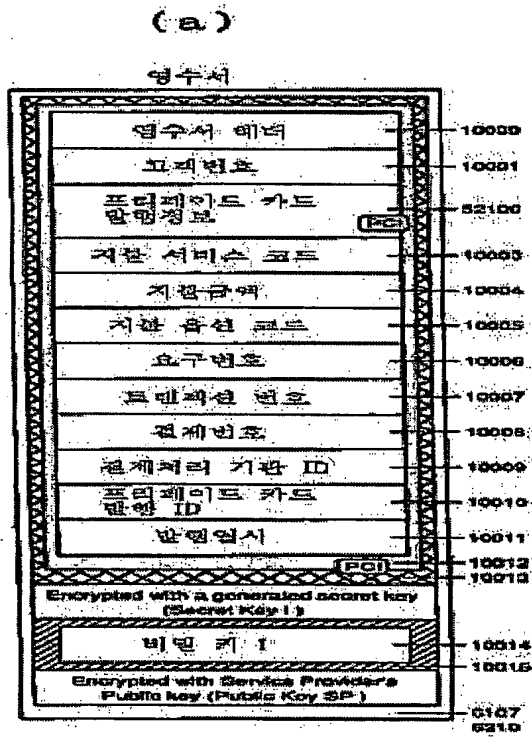 (a)
영수서
영수서 헤더 10000
고객번호 10001
프리페이드 카드
발행정보 52100
PCI
지불 서비스 코드 10003
지불금액 10004
지불 옵션 코드 10005
요구번호 10006
트랜잭션 번호 10007
결제번호 10008
결제처리 기관 ID 10009
프리페이드 카드
발행 ID 10010
발행일시 10011
PCI 10012
10013
Encrypted with a generated secret key
(Secret Key I)
비밀 키 I 10014
10015
Encrypted with Service Provider's
Public key (Public Key SP)
6107
6210